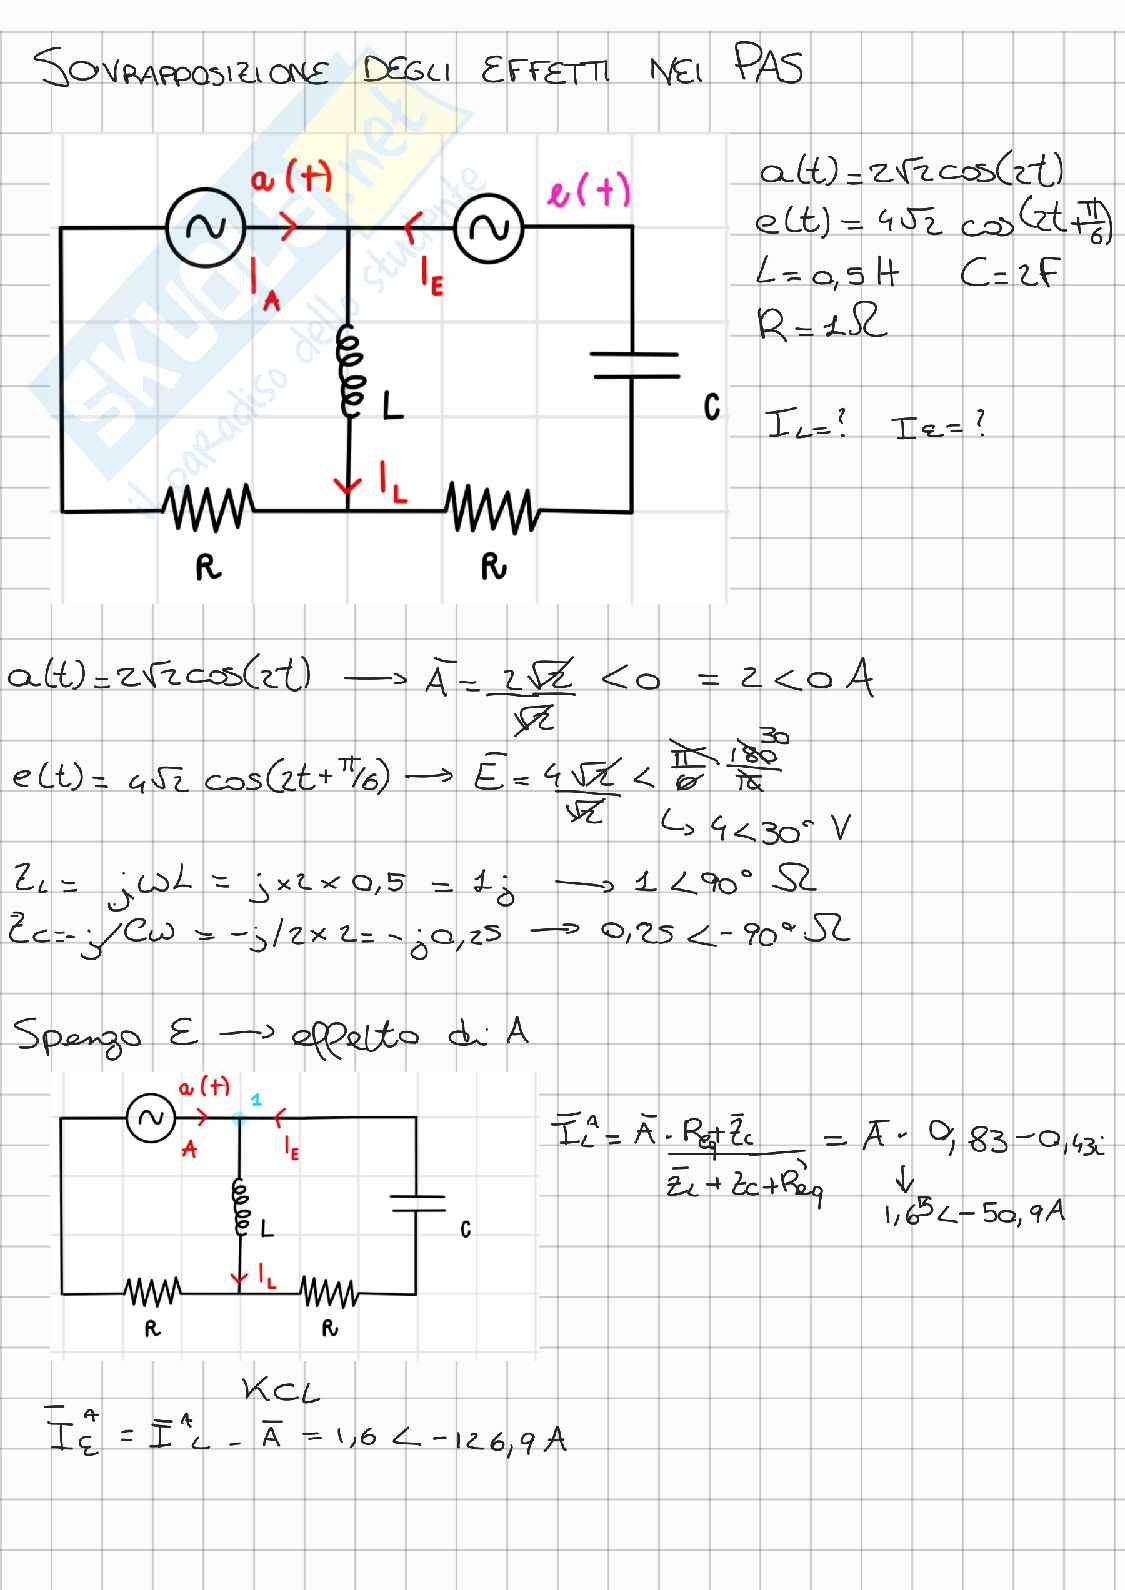 SOVRAPPOSIZIONE DEGLI EFFETTI NEI PAS
SKUOLA.net
il paradiso dello studente
a(t) e(t)
I_A I_E
L C
I_L
R R
a(t) = 2√2 cos(2t)
e(t) = 4√2 cos(2t+π/6)
L = 0,5 H C = 2F
R = 1Ω
I_L = ? I_E = ?
a(t) = 2√2 cos(2t) → Ā = 2√2/√2 <0 = 2<0 A
e(t) = 4√2 cos(2t+π/6) → Ē = 4√2/√2 < π/6 180/π 30
↳ 4<30° V
Z_L = jωL = j×2×0,5 = 1j → 1<90° Ω
Z_C = -j/Cω = -j/2×2 = -j0,25 → 0,25<-90° Ω
Spengo E → effetto di A
a(t) 1
A I_E
L C
I_L
R R
Ī_L^A = Ā · Req+Z̄c / Z̄_L+Zc+Req = Ā · 0,83-0,43i
↓
1,65<-50,9 A
KCL
Ī_E^A = Ī^A_L - Ā = 1,6 <-126,9 A